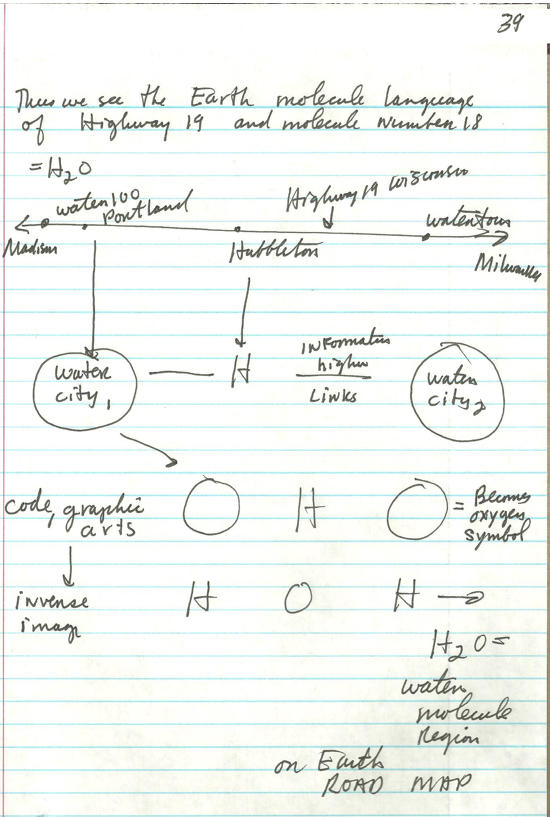 39
Thus we see the Earth molecule language
of Highway 19 and molecule number 18
= H₂O
Highway 19 Wisconsin
Portland
watertown
Madison
Hubbleton
Milwaukee
water
city, 1
H
INFORMATION
higher
Links
water
city 2
code, graphic
arts
O H O
= Becomes
oxygen
symbol
inverse
image
H O H
H₂O =
water
molecule
Region
on Earth
ROAD MAP